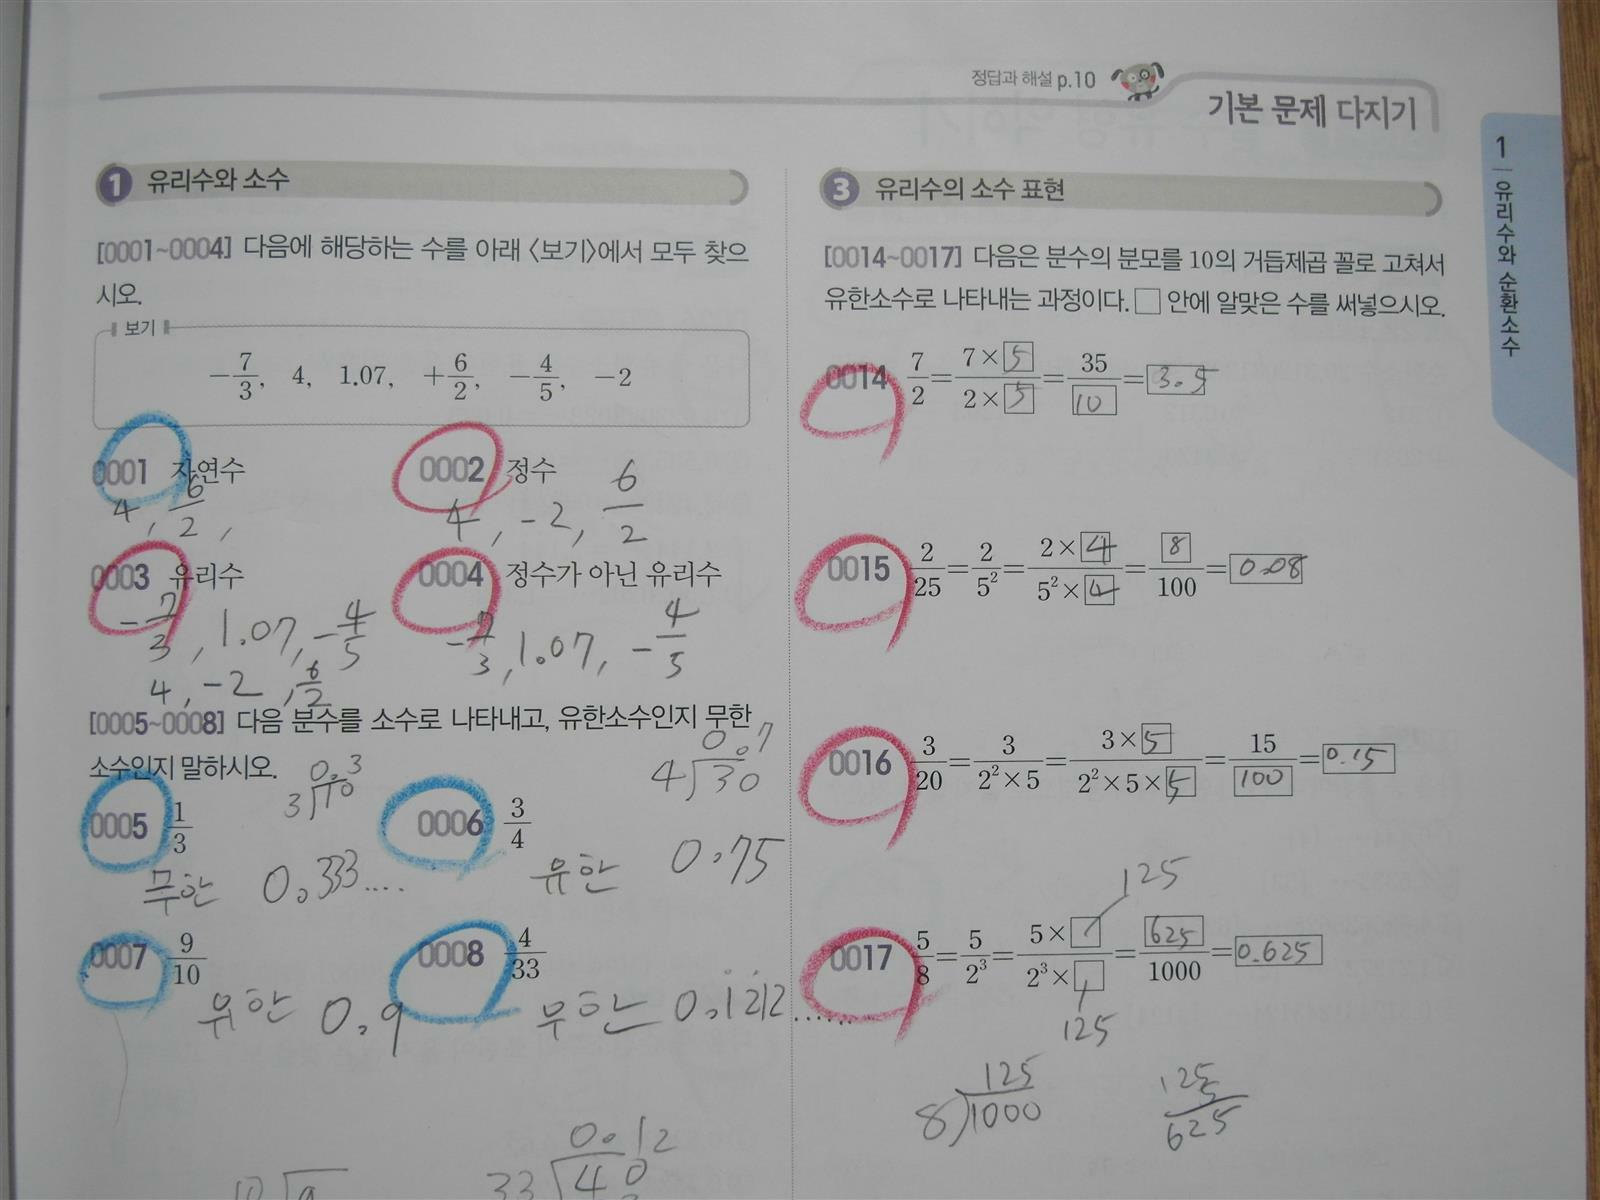 정답과 해설 p.10
기본 문제 다지기
1 유리수와 순환소수
1 유리수와 소수
[0001~0004] 다음에 해당하는 수를 아래 <보기>에서 모두 찾으
시오.
보기
-7/3, 4, 1.07, +6/2, -4/5, -2
0001 자연수
4, 6/2,
0002 정수
4, -2, 6/2
0003 유리수
-7/3, 1.07, -4/5
4, -2, 6/2
0004 정수가 아닌 유리수
-7/3, 1.07, -4/5
[0005~0008] 다음 분수를 소수로 나타내고, 유한소수인지 무한
소수인지 말하시오.
0.3
3)10
0.7
4)30
0005 1/3
무한 0.333....
0006 3/4
유한 0.75
0007 9/10
유한 0.9
0008 4/33
무한 0.1212......
0.12
33)40
10)9
3 유리수의 소수 표현
[0014~0017] 다음은 분수의 분모를 10의 거듭제곱 꼴로 고쳐서
유한소수로 나타내는 과정이다. □ 안에 알맞은 수를 써넣으시오.
0014 7/2 = 7×5/2×5 = 35/10 = 3.5
0015 2/25 = 2/5² = 2×4/5²×4 = 8/100 = 0.08
0016 3/20 = 3/2²×5 = 3×5/2²×5×5 = 15/100 = 0.15
125
0017 5/8 = 5/2³ = 5×□/2³×□ = 625/1000 = 0.625
125
125
8)1000
125
5
625